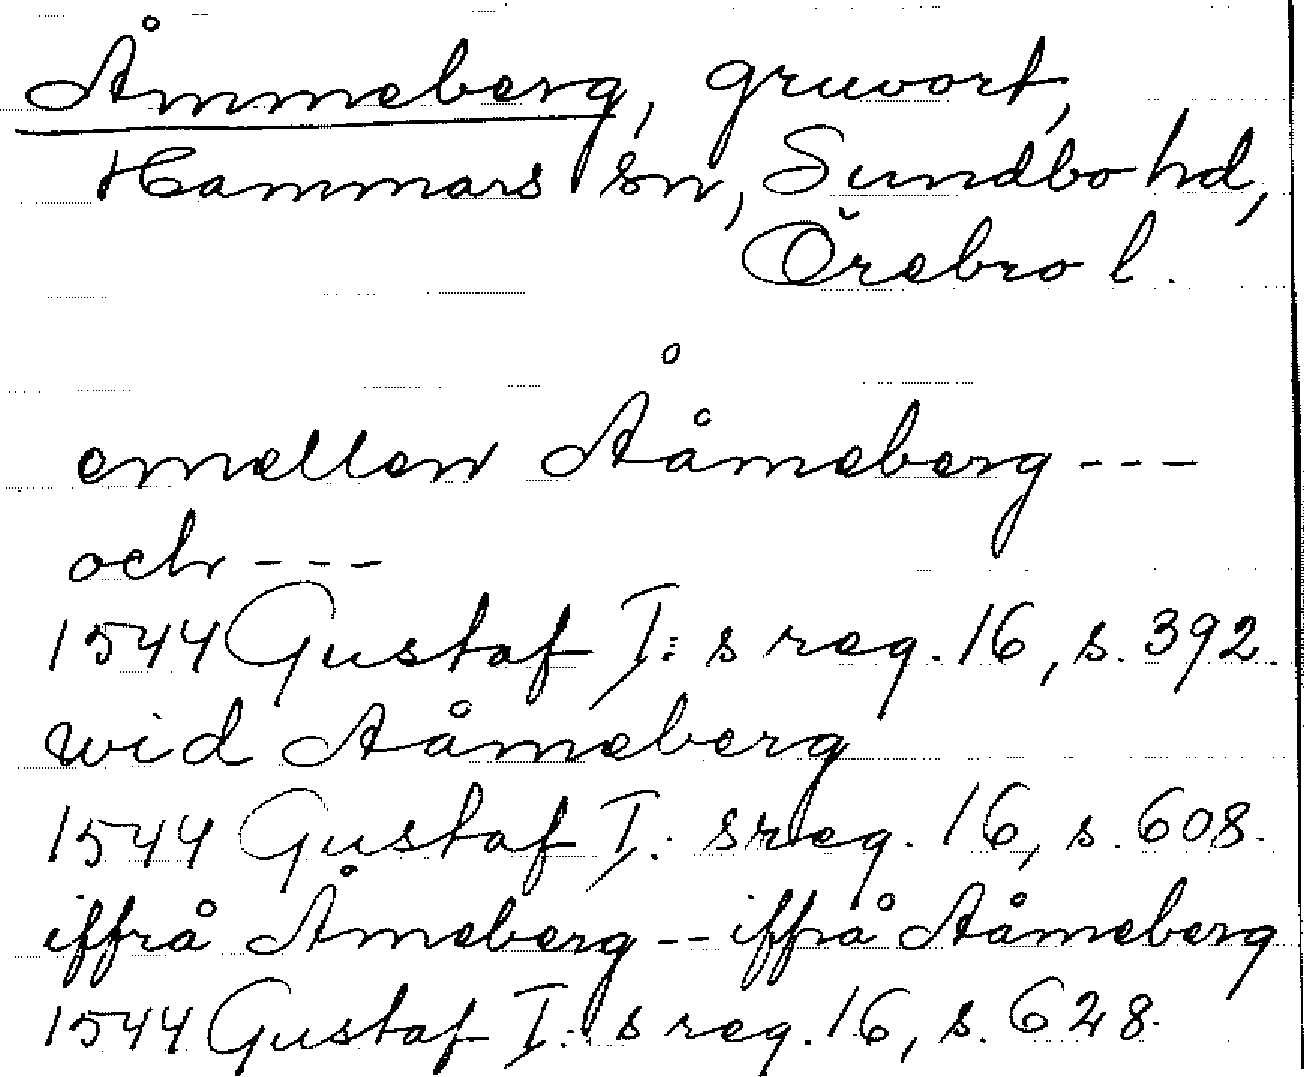 Åmmeberg, gruvort,
Hammars sn, Sundbo hd,
Örebro l.
emellen Ååmeberg ---
och ---
1544 Gustaf I:s reg. 16, s. 392.
wid Aåmeberg
1544 Gustaf I:s reg. 16, s. 608.
iffrå Åmeberg -- iffrå Aåmeberg
1544 Gustaf I:s reg. 16, s. 628.